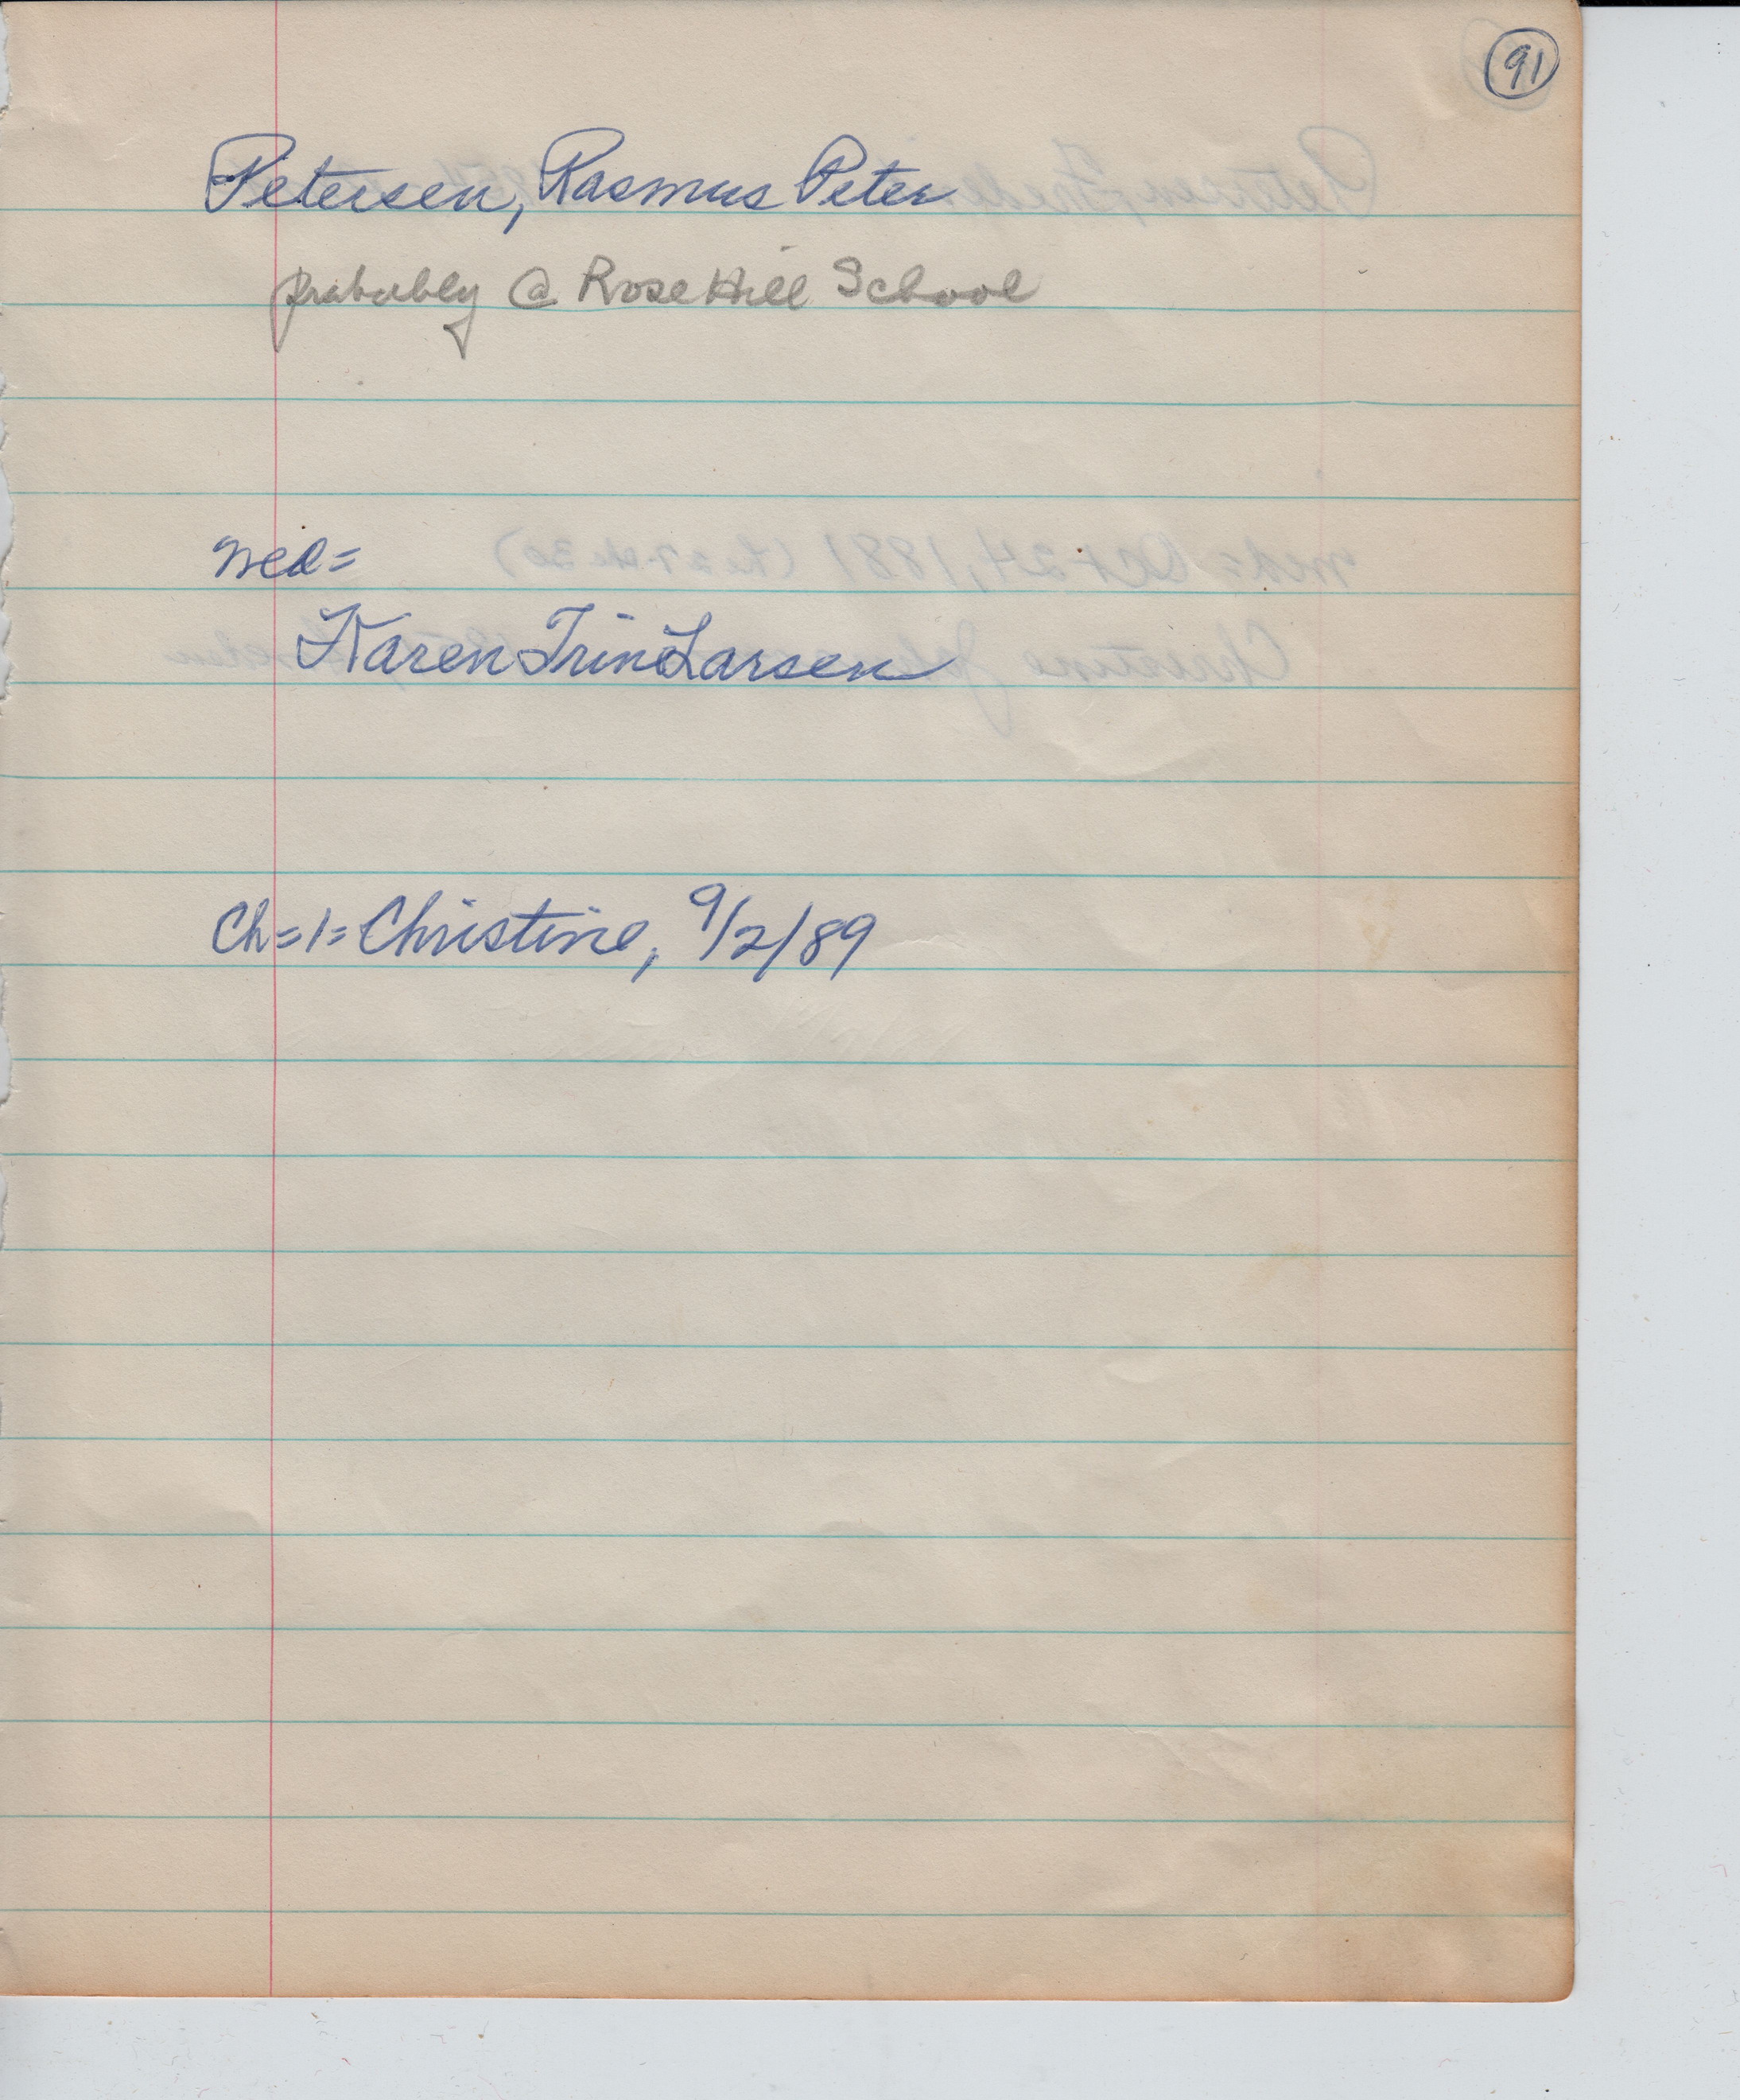 91
Petersen, Rasmus Peter
probably @ Rose Hill School
med=
Karen Trine Larsen
Ch=1= Christine, 9/2/89